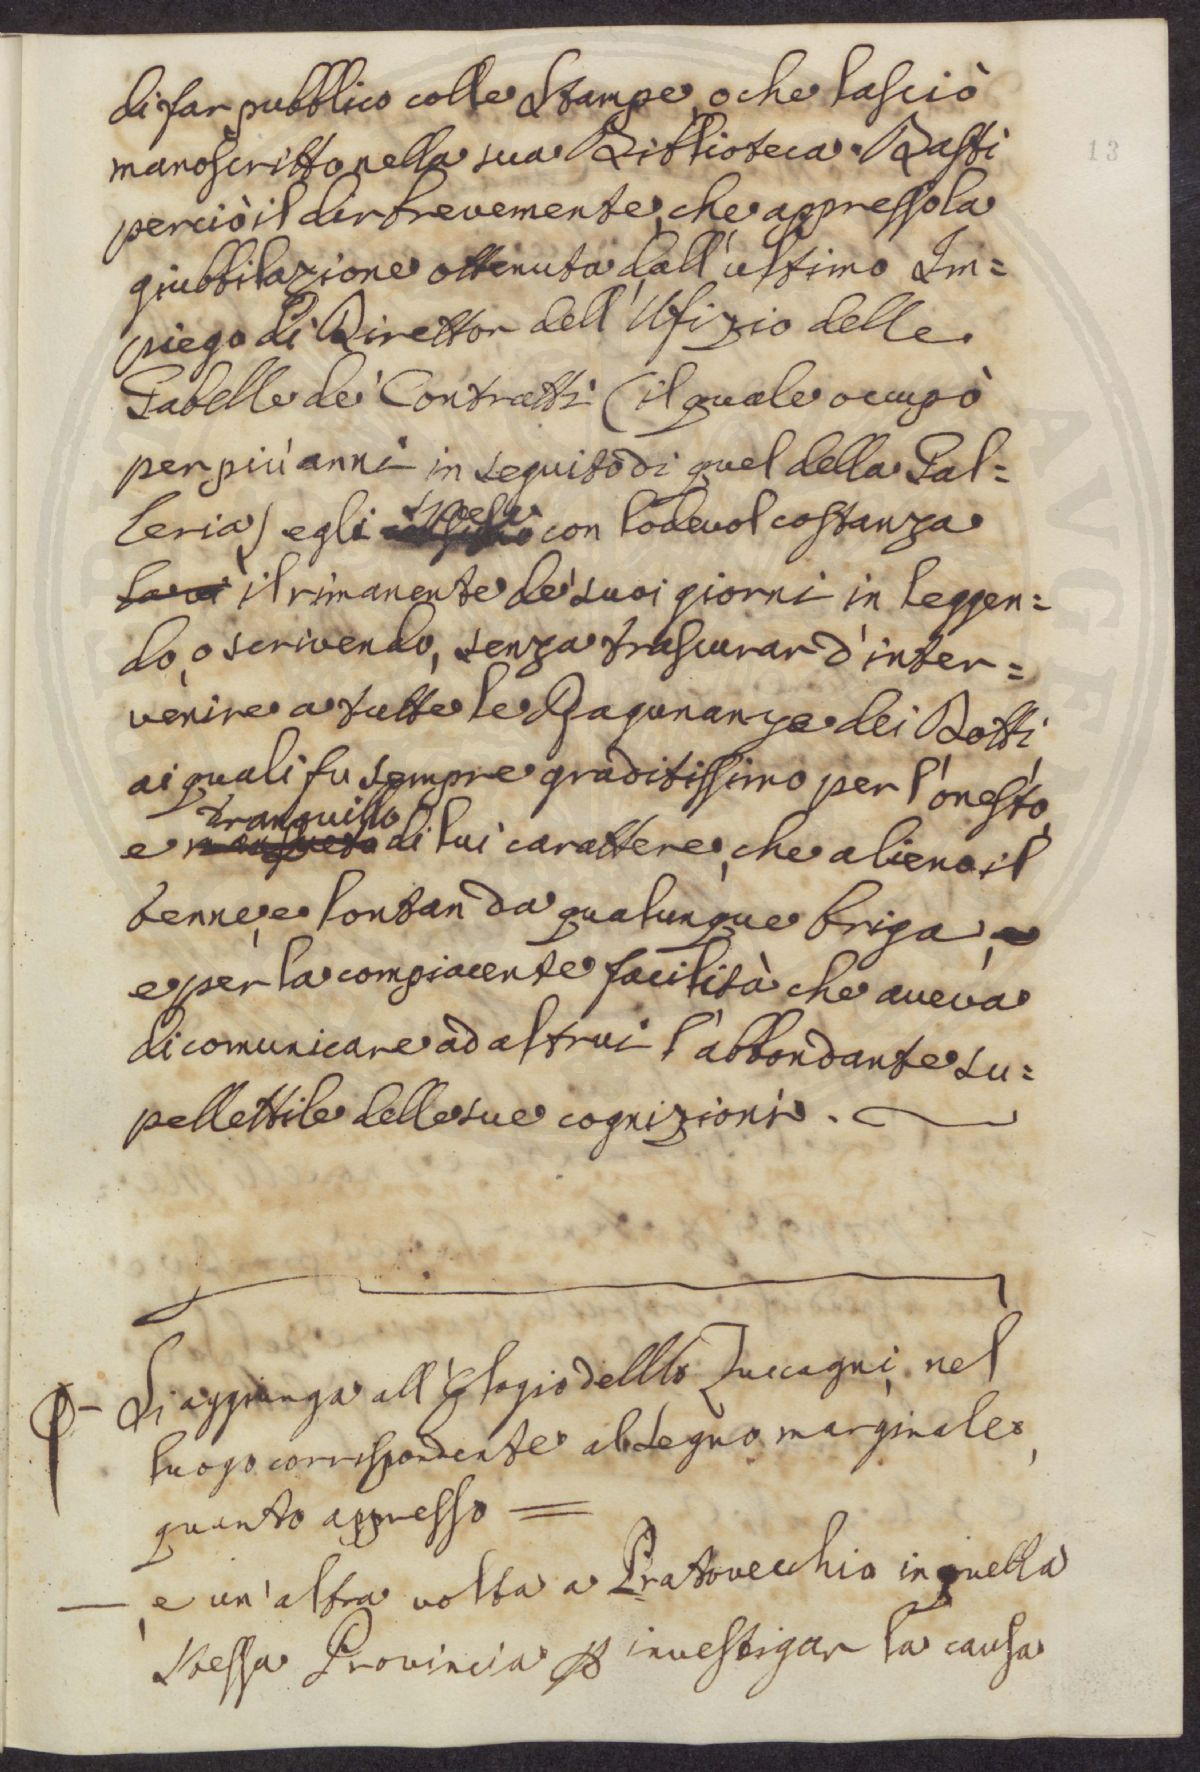 di far pubblico colle Stampe, o che lasciò
manoscritto nella sua Biblioteca. Basti
perciò il dir brevemente, che appresso la
giubbilazione ottenuta dall'ultimo Im=
piego di Direttor dell'Ufizio delle
Gabelle de' Contratti (il quale occupò
per più anni in seguito di quel della Gal=
leria) egli spese con lodevol costanza
il rimanente de' suoi giorni in leggen=
do, o scrivendo, senza trascurar d'inter=
venire a tutte le Ragunanze dei Botti
ai quali fu sempre graditissimo per l'onesto,
e tranquillo di lui carattere, che alieno il
tenne, e lontan da qualunque briga,
e per la compiacente facilità che aveva
di comunicare ad altrui l'abbondante su=
pellettile delle sue cognizioni.
13
Si aggiunga all'Elogio dello Zuccagni, nel
luogo corrispondente al segno marginale,
quanto appresso =
— , e un'altra volta a Pratovecchio in quella
stessa Provincia p investigar la causa